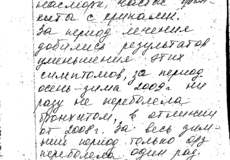 насморк, частые брон-
хиты с хрипами.
За период лечения
добились результатов
уменьшения этих
симптомов, за период
осень-зима 2009г. ни
разу не переболела
бронхитом, в отличии
от 2008г. За весь зим-
ний период только
переболела один раз